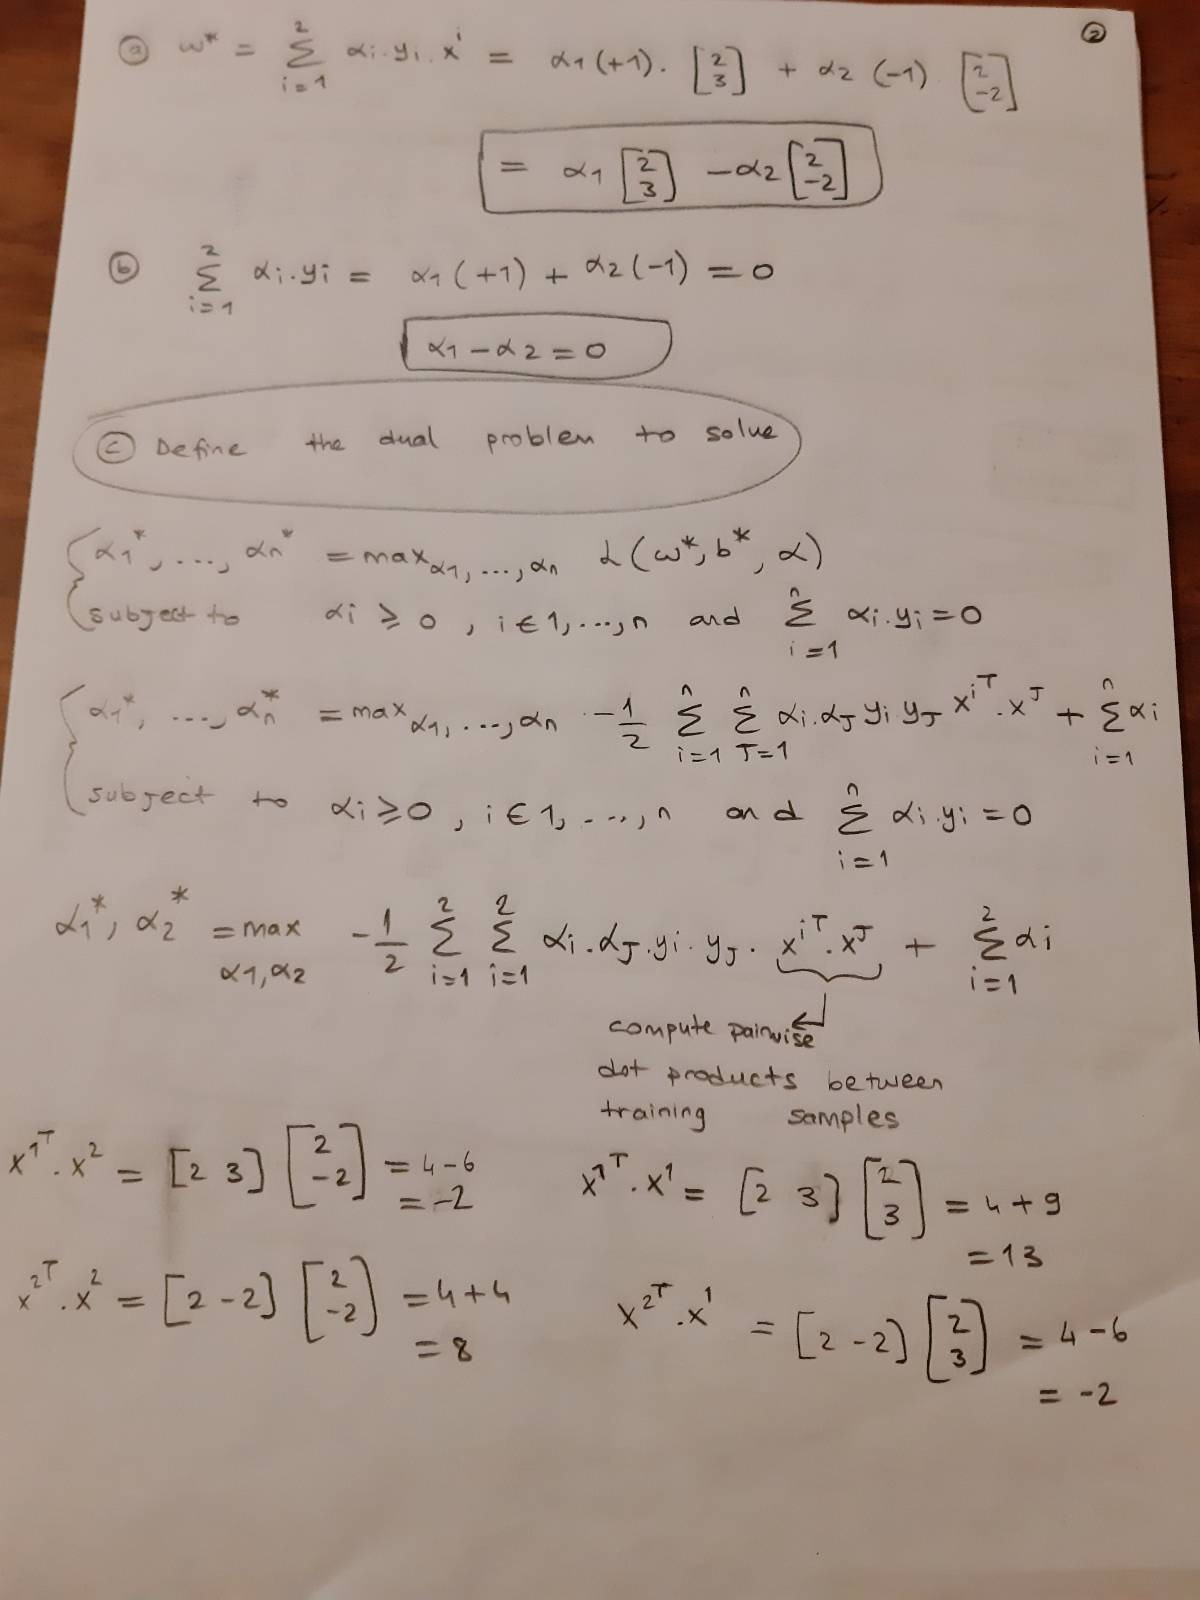 ②
ⓐ w* = Σ_{i=1}^{2} αi.yi.x^i = α1(+1). [2 3] + α2 (-1) [2 -2]
= α1 [2 3] - α2 [2 -2]
ⓑ Σ_{i=1}^{2} αi.yi = α1(+1) + α2(-1) = 0
α1 - α2 = 0
ⓒ Define the dual problem to solve
{ α1*, ..., αn* = max α1, ..., αn L(w*, b*, α)
subject to αi ≥ 0, i ∈ 1, ..., n and Σ_{i=1}^{n} αi.yi = 0
{ α1*, ..., αn* = max α1, ..., αn -1/2 Σ_{i=1}^{n} Σ_{J=1}^{n} αi.αJ yi yJ x^{iT}.x^J + Σ_{i=1}^{n} αi
subject to αi ≥ 0, i ∈ 1, ..., n and Σ_{i=1}^{n} αi.yi = 0
α1*, α2* = max α1, α2 -1/2 Σ_{i=1}^{2} Σ_{i=1}^{2} αi.αJ.yi.yJ. x^{iT}.x^J + Σ_{i=1}^{2} αi
compute pairwise
dot products between
training samples
x^{1T}.x^2 = [2 3] [2 -2] = 4-6
= -2
x^{1T}.x^1 = [2 3] [2 3] = 4+9
= 13
x^{2T}.x^2 = [2 -2] [2 -2] = 4+4
= 8
x^{2T}.x^1 = [2 -2] [2 3] = 4-6
= -2